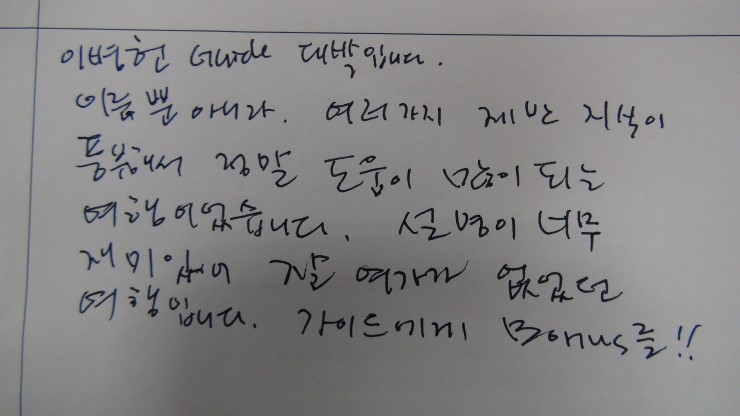 이병헌 Guide 대박입니다.
이름뿐 아니라. 여러가지 제반 지식이
풍부해서 정말 도움이 많이 되는
여행이었습니다. 설명이 너무
재미있어 잘 여가가 없었던
여행입니다. 가이드에게 Bonus를!!